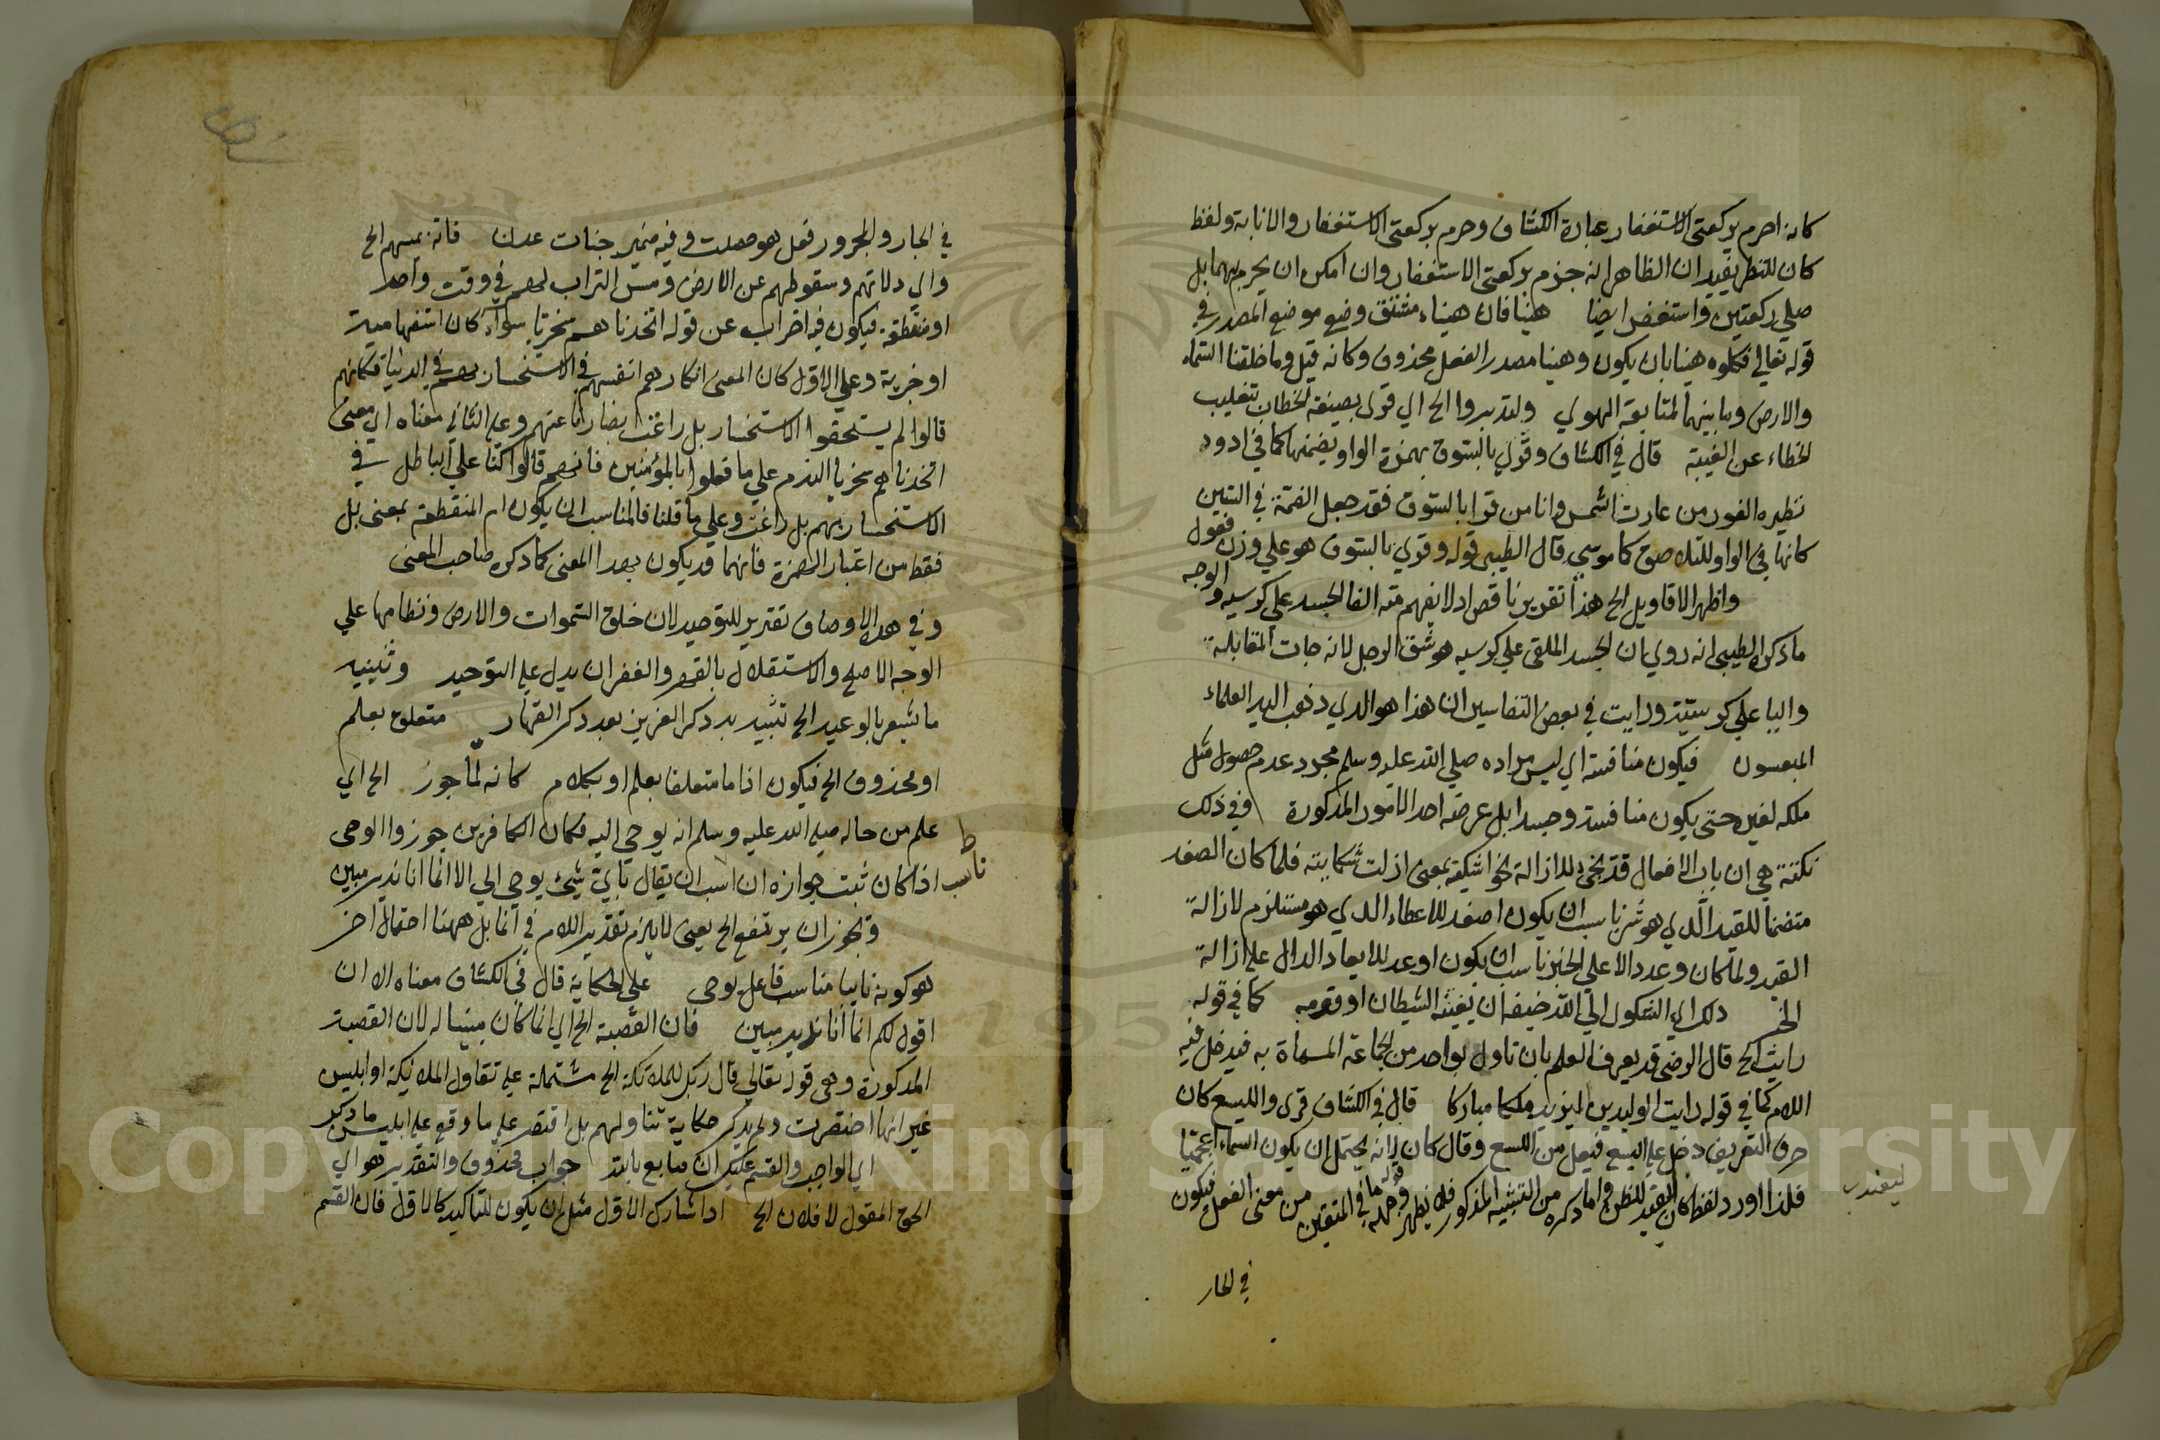 كانه احرم بركعتي الاستغفار عبارة الكشاف وحرم بركعتي الاستغفار والانابة ولفظ
كان للنظر يفيد ان الظاهر انه جزم بركعتي الاستغفار وان امكن ان يحرم بهما بل
صلي ركعتين واستغفر ايضا هنيا فان هنياء مشتق وضع موضع المصدر في
قوله تعالي فكلوه هنيا بان يكون وهنيا مصدر الفعل محذوف وكانه قيل وما خلقنا السماء
والارض وما بينهما لمتابعة الهوي وليتدبروا الخ اي قرى بصيغة الخطاب تغليب
الخطاء عن الغيبة قال في الكشاف وقرئ بالسئوق بهمزة الواو بضمتها كما في ادور
نظيره الغور من غارت الشمس وانا من قرا بالسئوق فقد جعل الضمة في السين
كانها في الواو للتلاصق كما موسي قال الطيبي قوله وقرئ بالسئوق هو علي وزن فعول
واظهر الاقاويل الخ هذا تقرير ناقص اذ لا يفهم منه القا الجسد علي كرسيه والوجه
ما ذكره الطيبي انه روي ان الجسد الملقى علي كرسيه هو شق الرجل لانه جات المقابلة
والبا علي كرسيه ورايت في بعض التفاسير ان هذا هو الدي ذهب اليه العلماء
فيكون منافسة اي ليس مراده صلي الله عليه وسلم مجرد عدم حصول مثل
ملكه لغيره حتى يكون منافسة وحسدا بل غرضه احد الامور المذكورة وفي ذلك
نكتة هي ان باب الافعال قد يجئ للازالة نحو اشكيته بمعنى ازلت شكايته فلما كان الصفد
متضمنا للقيد الذي هو شر ناسب ان يكون اصفد للاعطاء الدي هو مستلزم لازالة
القيد ولما كان وعد دالا علي الخير ناسب ان يكون اوعد للايعاد الدال علي ازالة
الخير ذلك اي الشكوى الي الله خيفة ان يفتنه الشيطان او قومه كما في قوله
رايت الخ قال الرضي قد يعرف العلم بان تاول بواحد من الجماعة المسماة به فيدخل فيه
اللام كما في قوله رايت الوليد بن اليزيد ملكا مباركا قال في الكشاف قرئ والليسع كان
حرف التعريف دخل علي اليسع فيعل من اللسع وقال كان لانه يحتمل ان يكون اسماء اعجميا
فلذا اورد لفظ كان المفيد للظن واما ذكره من التشبيه المذكور فلا يظهر وجهه قوله ما في المتقين من معنى الفعل فيكون
في الجار
في الجار والمجرور فعل هو حصلت وفيه ضمير جنات عدن فانه يمسهم الخ
والي دلاتهم وسقوطهم عن الارض ومس التراب لهم في وقت واحد
او منقطعة فيكون فيه اضراب عن قوله اتخذناهم سخريا سواء كان استفهامية
او خبرية وعلي الاول كان المعنى انكارهم انفسهم في الاستخسار بهم في الدنيا فكانهم
قالوا لم يستحقوا الاستخسار بل زاغت ابصارنا عنهم وعلي الثاني معناه اي معنى
اتخذناهم سخريا الندم علي ما فعلوا بالمؤمنين فانهم قالوا كنا علي الباطل في
الاستخسار بهم بل زاغت وعلي ما قلنا فالمناسب ان يكون ام المنقطعة بمعنى بل
فقط من اعتبار الهمزة فانهما قد يكون بهذا المعنى كما ذكره صاحب المغنى
وفي هذه الاوصاف تقرير للتوحيد لان خلق السموات والارض ونظامها علي
الوجه الاصلح والاستقلال بالقهر والغفران يدل علي التوحيد وتثنيه
ما يشعر بالوعيد الخ تثنية بد ذكر العزيز بعد ذكر القهار متعلق بعلم
او محذوف الخ فيكون اذا ما متعلقا بعلم او بكلام كانه لما جوز الخ اي
علم من حاله صلي الله عليه وسلم انه يوحى اليه فكان الكافرين جوزوا الوحى
اذا كان ثبت جوازه ان اسب ان يقال باي شئ يوحي الي الا انما انا نذير مبين
ناسب ط
ويجوز ان يرتفع الخ يعنى لا يلزم تقدير اللام في انما بل ههنا احتمال اخر
هو كونه نايبا مناسب فاعل يوحى علي الحكاية قال في الكشاف معناه الا ان
اقول لكم انما انا نذير مبين فان القصة الخ اي انما كان مبينا له لان القصة
المذكورة وهى قوله تعالي قال ربك للملائكة الخ مشتملة علي تقاول الملائكة وابليس
غير انها اختصرت ولم يذكر حكاية تناولهم بل اقتصر علي ما وقع علي ابليس من ذكر ما
اي الواجب والقسم عليك ان تبايع بالله جواب محذوف والتقدير هو اي
الحق المقول لاملان الخ اذا شارك الاول مثل ان يكون للتاكيد كالاول فان القسم
Copyright © King Saud University
1957